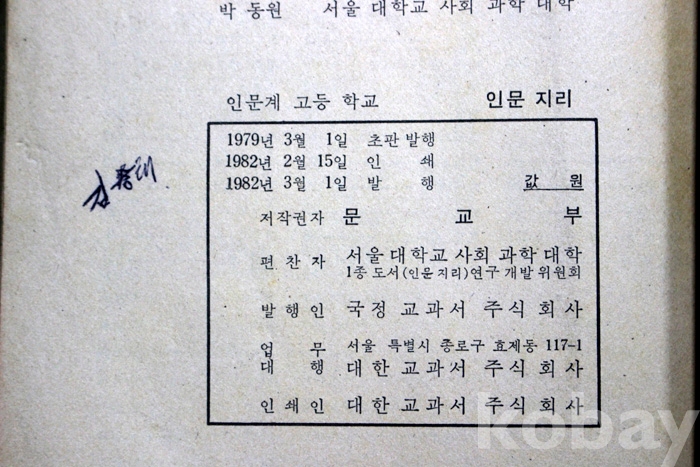 박 동원 서울 대학교 사회 과학 대학
인문계 고등 학교 인문 지리
1979년 3월 1일 초판 발행
1982년 2월 15일 인 쇄
1982년 3월 1일 발 행 값 원
저작권자 문 교 부
편 찬 자 서울 대학교 사회 과학 대학
1종 도서(인문 지리)연구 개발 위원회
발 행 인 국정 교과서 주식 회사
업 무 서울 특별시 종로구 효제동 117-1
대 행 대한 교과서 주식 회사
인 쇄 인 대한 교과서 주식 회사
kobay